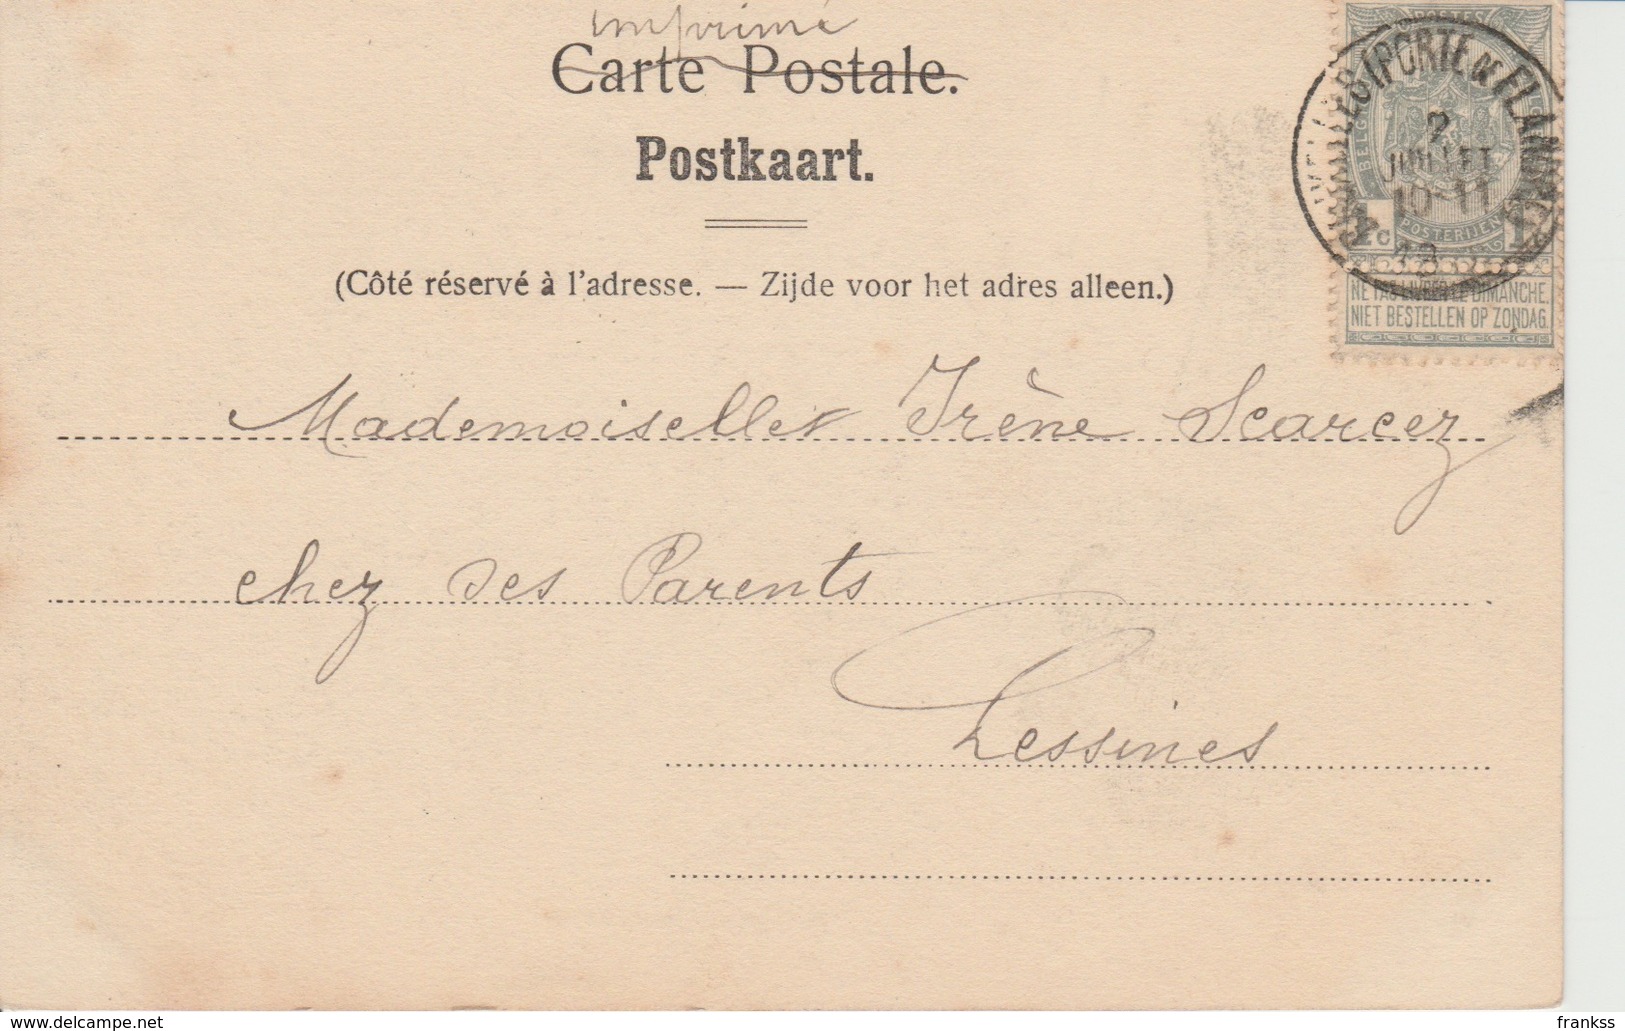 imprimé
Carte Postale.
Postkaart.
(Côté réservé à l'adresse. — Zijde voor het adres alleen.)
(PORTE DE FLANDRE)
2
JUILLET
10-11
1c
POSTERIJEN
1c
NE PAS LIVRER LE DIMANCHE.
NIET BESTELLEN OP ZONDAG.
Mademoiselle Irène Scarcez
chez ses Parents
Lessines
delcampe.net
frankss